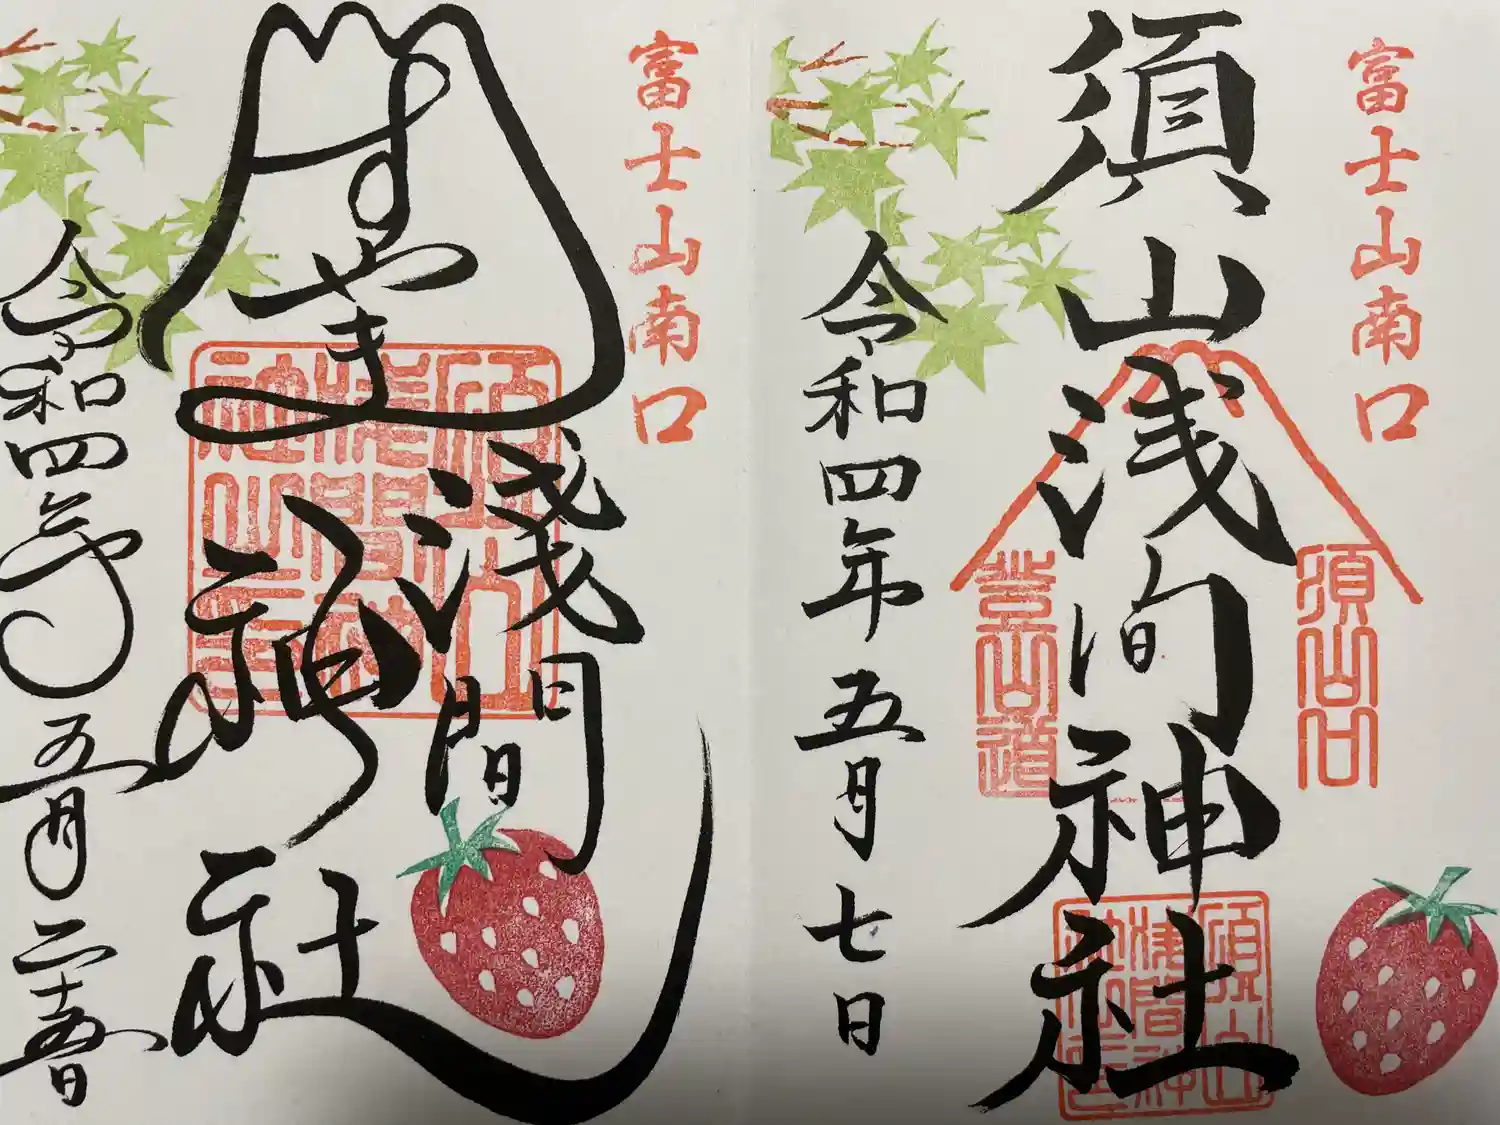 富士山南口
須山浅间神社
須山口
登山道
令和四年五月七日
富士山南口
すやま
淺間
神社
令和四年五月二十五日